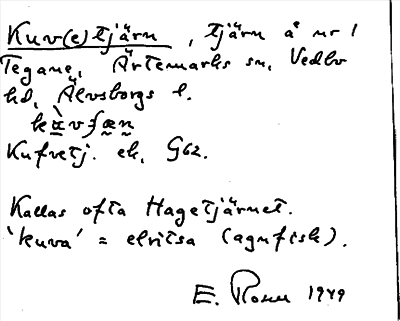 Kuv(e)tjärn, tjärn å nr 1
Tegane, Ärtemarks sn, Vedbo
hd, Älvsborgs l.
Kufvetj. ek. G62.
Kallas ofta Hagetjärnet.
'kuva' = elritsa (agnfisk).
E. Rosell 1949